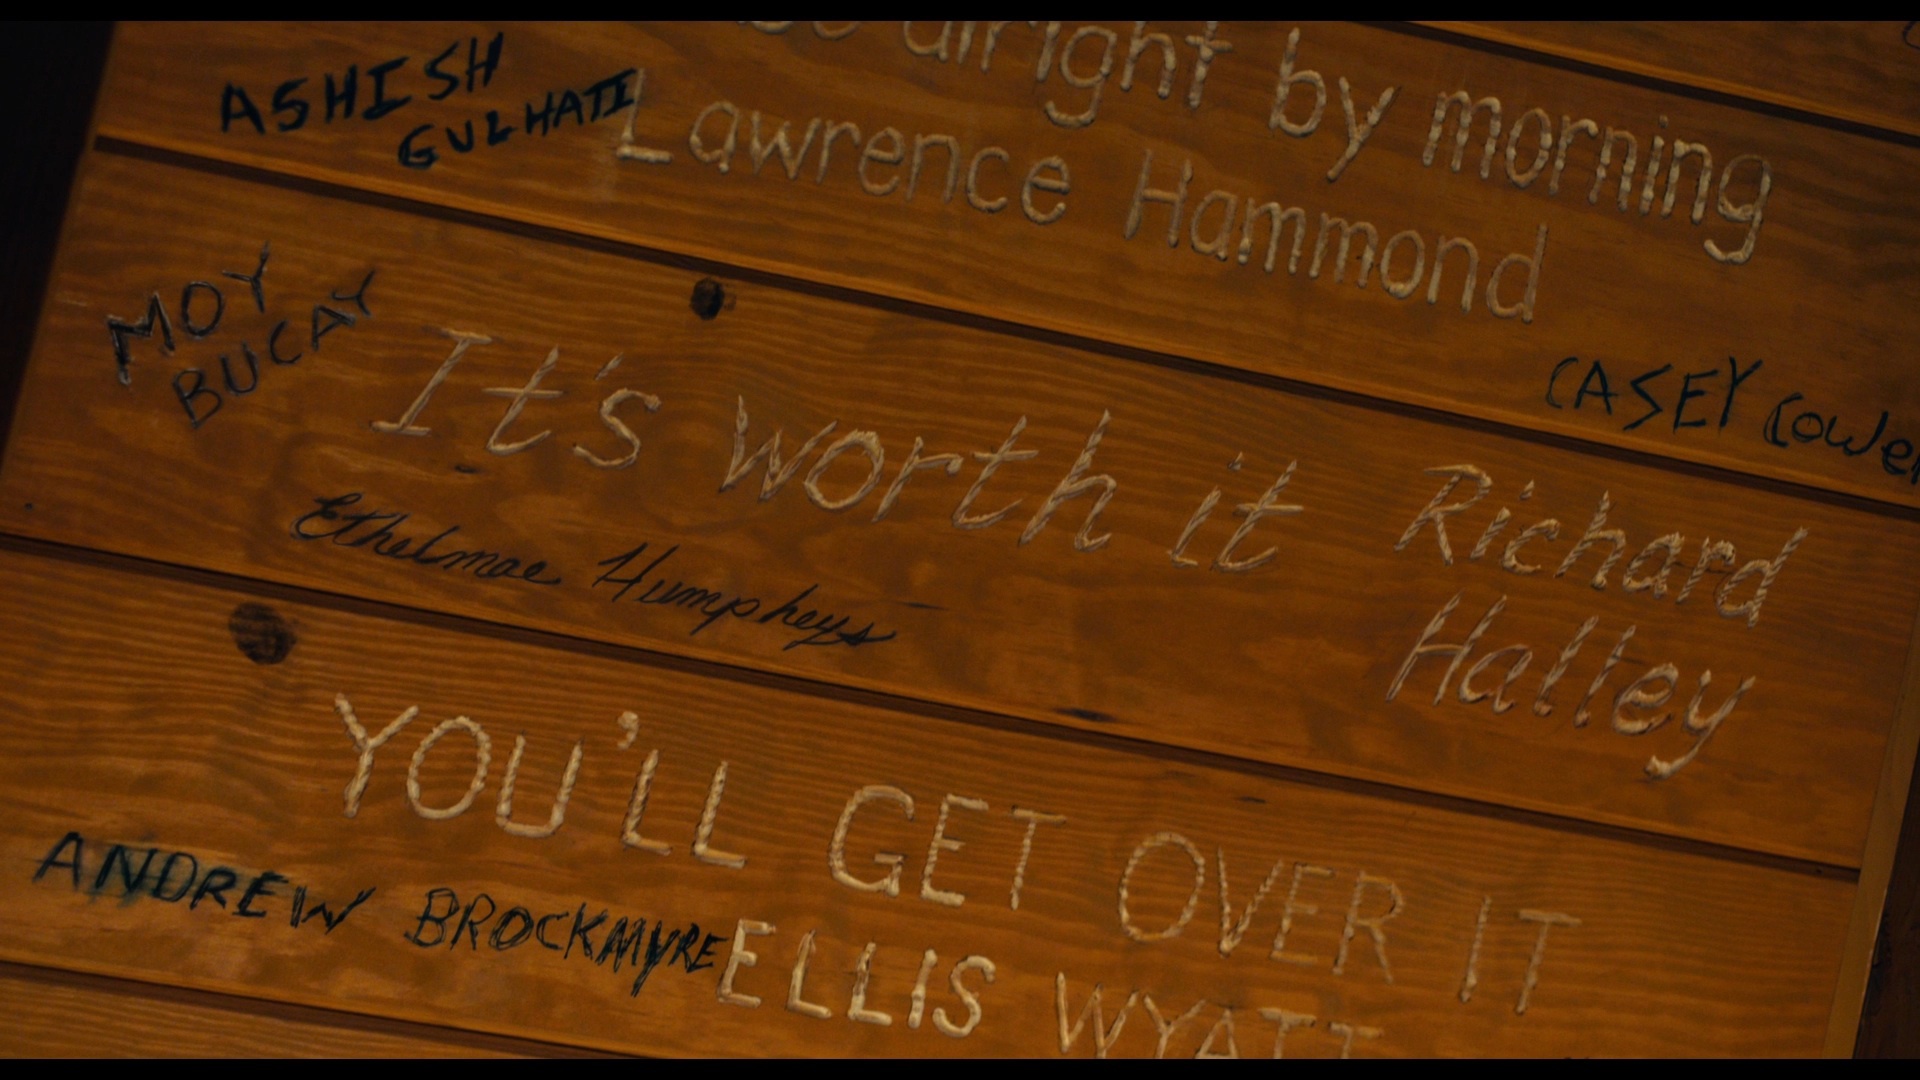 alright by morning
ASHISH
GULHATI
Lawrence Hammond
MOY
BUCAY
CASEY Cowe
It's worth it Richard
Halley
Ethelmae Humphreys
YOU'LL GET OVER IT
ANDREW BROCKMYRE
ELLIS WYATT